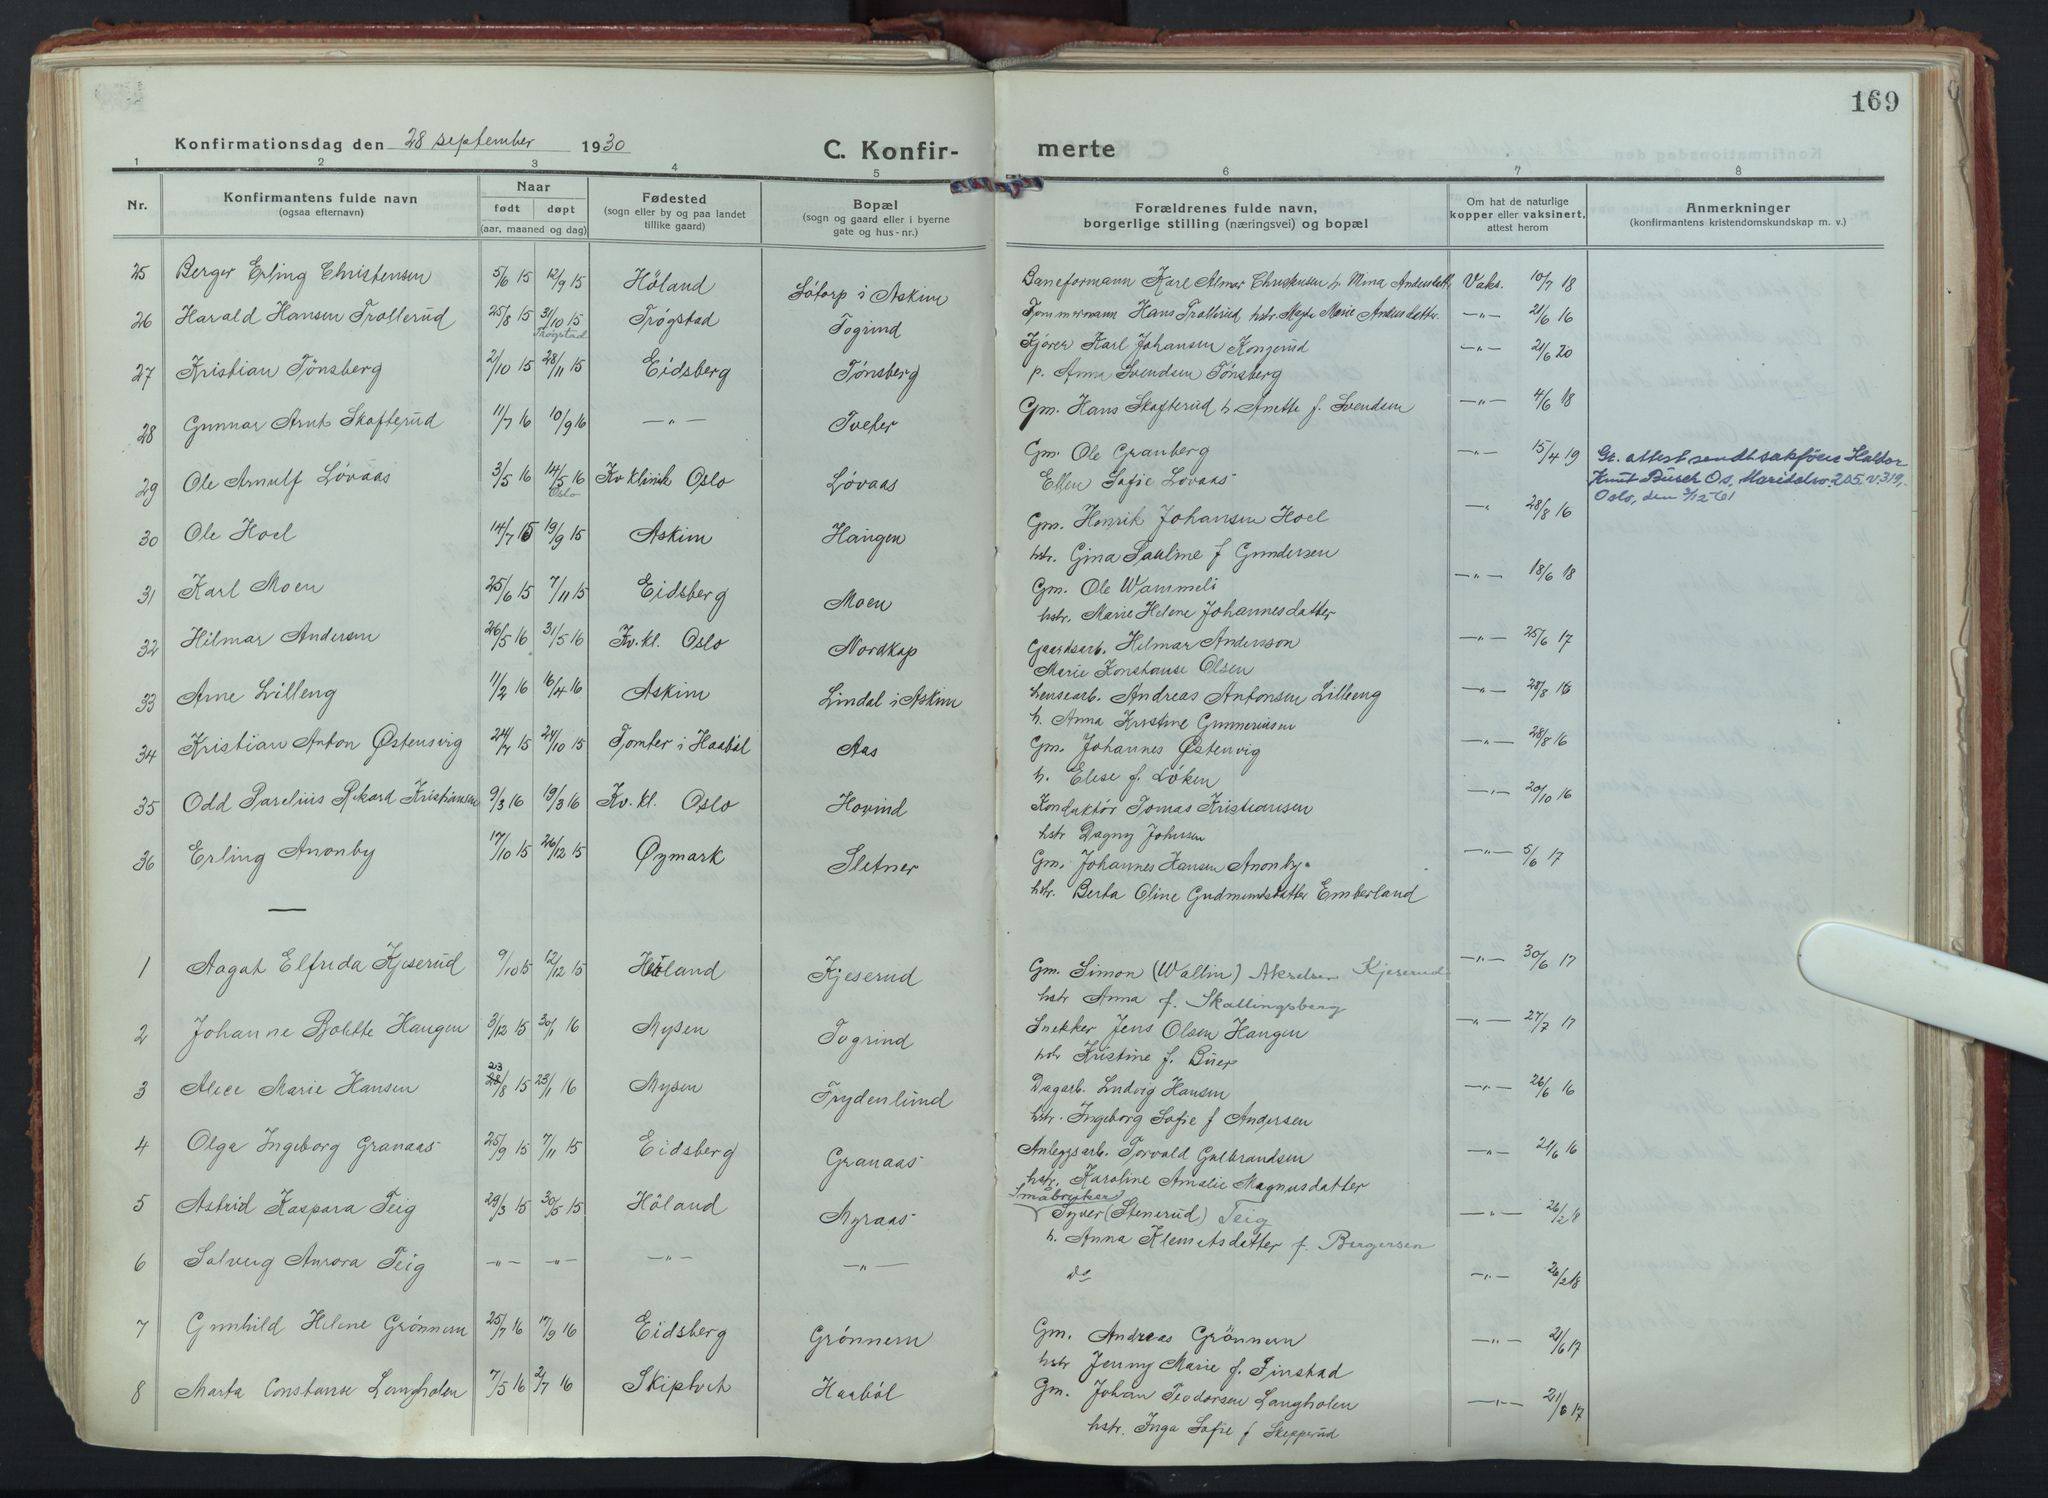 169
Konfirmationsdag den 28 september 1930
C. Konfir- merte
1 2 3 4 5 6 7 8
Nr.
Konfirmantens fulde navn
(ogsaa efternavn)
Naar
født døpt
(aar, maaned og dag)
Fødested
(sogn eller by og paa landet
tillike gaard)
Bopæl
(sogn og gaard eller i byerne
gate og hus-nr.)
Forældrenes fulde navn,
borgerlige stilling (næringsvei) og bopæl
Om hat de naturlige
kopper eller vaksinert,
attest herom
Anmerkninger
(konfirmantens kristendomskundskap m. v.)
25 Berger Erling Christensen 5/6 15 12/9 15 Høland Løtorp i Askim Baneformann Karl Almar Christensen h. Mina Andersdtt. Vaks. 10/7 18
26 Harald Hansen Trollerud 25/8 15 31/10 15 Trøgstad Trøgstad Togrind Tømmermann Hans Trollerud hstr. Marie Andersdatter —„— 21/6 16
27 Kristian Tønsberg 2/10 15 28/11 15 Eidsberg Tønsberg Kjører Karl Johansen Kongerud —„— 21/6 20
p. Anna Svendsen Tønsberg
28 Gunnar Arnt Skofterud 11/7 16 10/9 16 —„— Tveter Gm. Hans Skofterud h. Anette f. Svendsen —„— 4/6 18
29 Ole Arnulf Løvaas 3/5 16 14/5 16 Oslo Kv klinik Oslo Løvaas Gm. Ole Granberg —„— 15/4 19
Ellen Sofie Løvaas
Gr. attest sendt sakfører Haldor
Knut Busch Os, Maridalsv. 205.v.319,
Oslo, den 2/12 61
30 Ole Hoel 14/7 15 19/9 15 Askim Haugen Gm. Henrik Johansen Hoel —„— 28/8 16
hstr. Gina Pauline f Gundersen
31 Karl Moen 25/6 15 7/11 15 Eidsberg Moen Gm. Ole Wammeli —„— 18/6 18
hstr. Marie Helene Johannesdatter
32 Hilmar Andersen 26/5 16 31/5 16 Kv. kl. Oslo Nordkap Gaardsarb. Hilmar Andersson —„— 25/6 17
Marie Konstanse Olsen
33 Arne Lilleng 11/2 16 16/4 16 Askim Lindal i Askim Andreas Antonsen Lilleng —„— 28/8 16
h. Anna Kristine Gunneriusen
34 Kristian Anton Østensvig 24/7 15 24/10 15 Tomter i Haabøl Aas Gm. Johannes Østenvig —„— 28/8 16
h. Elise f. Løken
35 Odd Parelius Rikard Kristiansen 9/3 16 19/3 16 Kv. kl. Oslo Hovind Konduktør Tomas Kristiansen —„— 20/10 16
hstr Dagny Johnsen
36 Erling Anonby 17/10 15 26/12 15 Øymark Sletner Gm. Johannes Hansen Anonby. —„— 5/6 17
hstr. Berta Oline Gudmundsdatter Emberland
—
1 Aagat Elfrida Kjeserud 9/10 15 12/12 15 Høland Kjeserud Gm. Simon (Wallin) Akselsen Kjeserud —„— 30/6 17
hstr Anna f. Skallingsberg
2 Johanne Bolette Haugen 3/12 15 30/1 16 Mysen Togrind Snekker Jens Olsen Haugen —„— 27/7 17
hstr Kristine f. Buer
3 Alice Marie Hansen 23 28/8 15 23/1 16 Mysen Frydenlund Dagarb. Ludvig Hansen —„— 26/6 16
hstr. Ingeborg Sofie f Andersen
4 Olga Ingeborg Granaas 25/9 15 7/11 15 Eidsberg Granaas Anleggsarb. Torvald Gulbrandsen —„— 21/6 16
hstr. Karoline Amalie Magnusdatter
5 Astrid Kaspara Teig 29/3 15 30/5 15 Høland Myraas Småbruker
Syver (Stenerud) Teig —„— 26/2 18
h. Anna Klemetsdatter f. Børgersen
6 Solveig Aurora Teig —„— —„— —„— —„— do —„— 26/2 18
7 Gunhild Helene Grønnern 25/7 16 17/9 16 Eidsberg Grønnern Gm. Andreas Grønnern —„— 21/6 17
hstr Jenny Marie f. Finstad
8 Marta Constanse Langholen 7/5 16 2/7 16 Skiptvet Haabøl Gm. Johan Teodorsen Langholen —„— 21/6 17
hstr. Inga Sofie f Skepperud